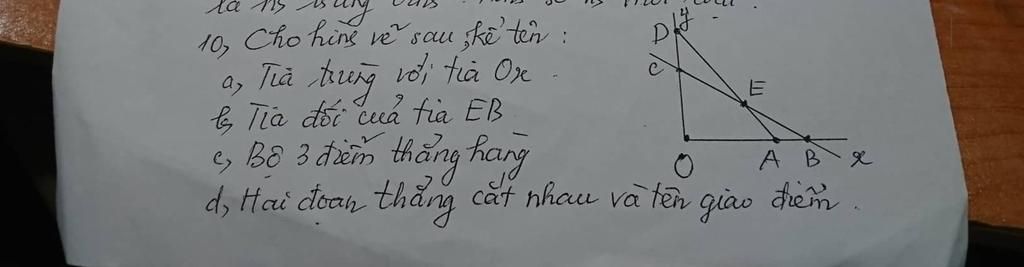 10, Cho hình vẽ sau, kể tên :
a, Tia trùng với tia Ox
b, Tia đối của tia EB
c, Bộ 3 điểm thẳng hàng
d, Hai đoạn thẳng cắt nhau và tên giao điểm.
y
D
C
E
O
A
B
x